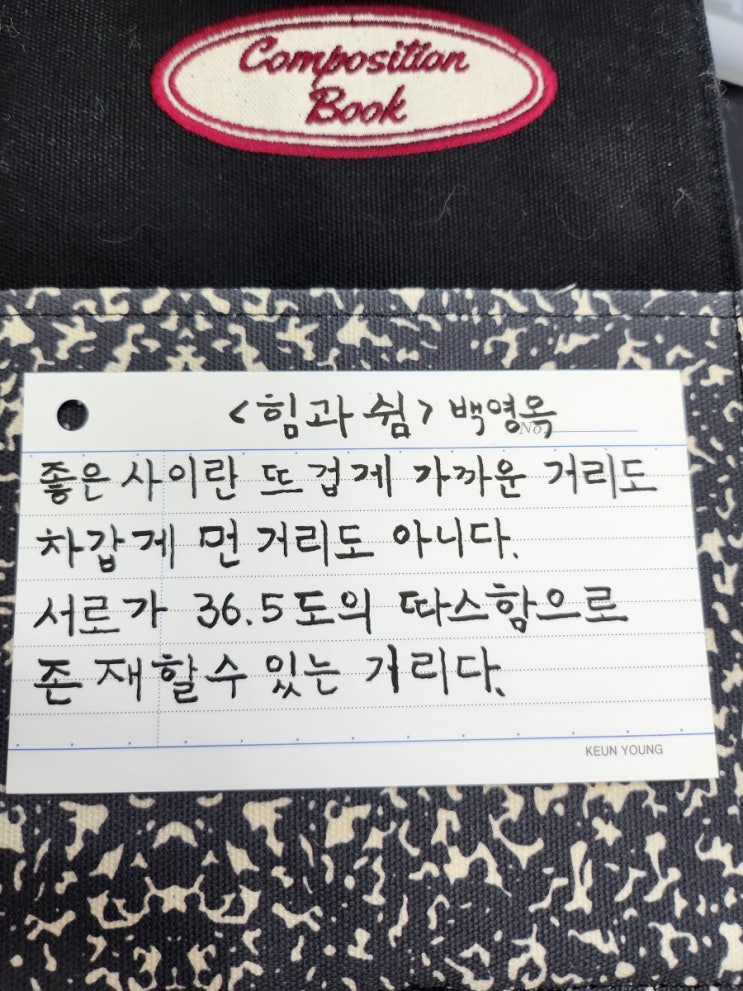 Composition
Book
<힘과 쉼> 백영옥
No.
좋은 사이란 뜨겁게 가까운 거리도
차갑게 먼 거리도 아니다.
서로가 36.5도의 따스함으로
존재할 수 있는 거리다.
KEUN YOUNG